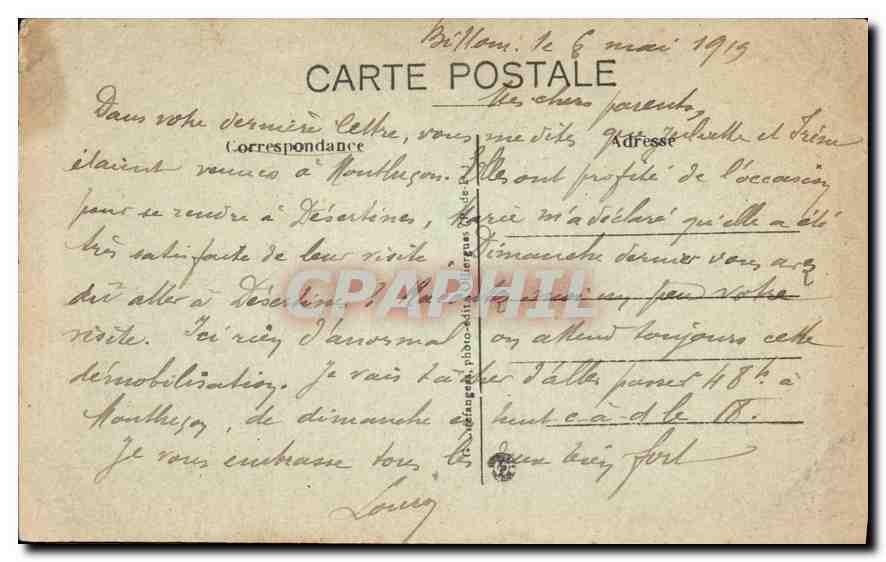 Billom, le 6 mai 1919
CARTE POSTALE
Mes chers parents,
Dans votre dernière lettre, vous me dites que Juliette et Irène
Correspondance
Adresse
étaient venues à Montluçon. Elles ont profité de l'occasion
pour se rendre à Désertines, Marie m'a déclaré qu'elle a été
très satisfaite de leur visite. Dimanche dernier vous avez
dû aller à Désertines ? Racontez moi un peu votre
CPAPHIL
visite. Ici rien d'anormal on attend toujours cette
démobilisation. Je vais tâcher d'aller passer 48h à
Montluçon, de dimanche en huit c-à-d le 18.
Je vous embrasse tous les deux bien fort
Louis
photo-édit.